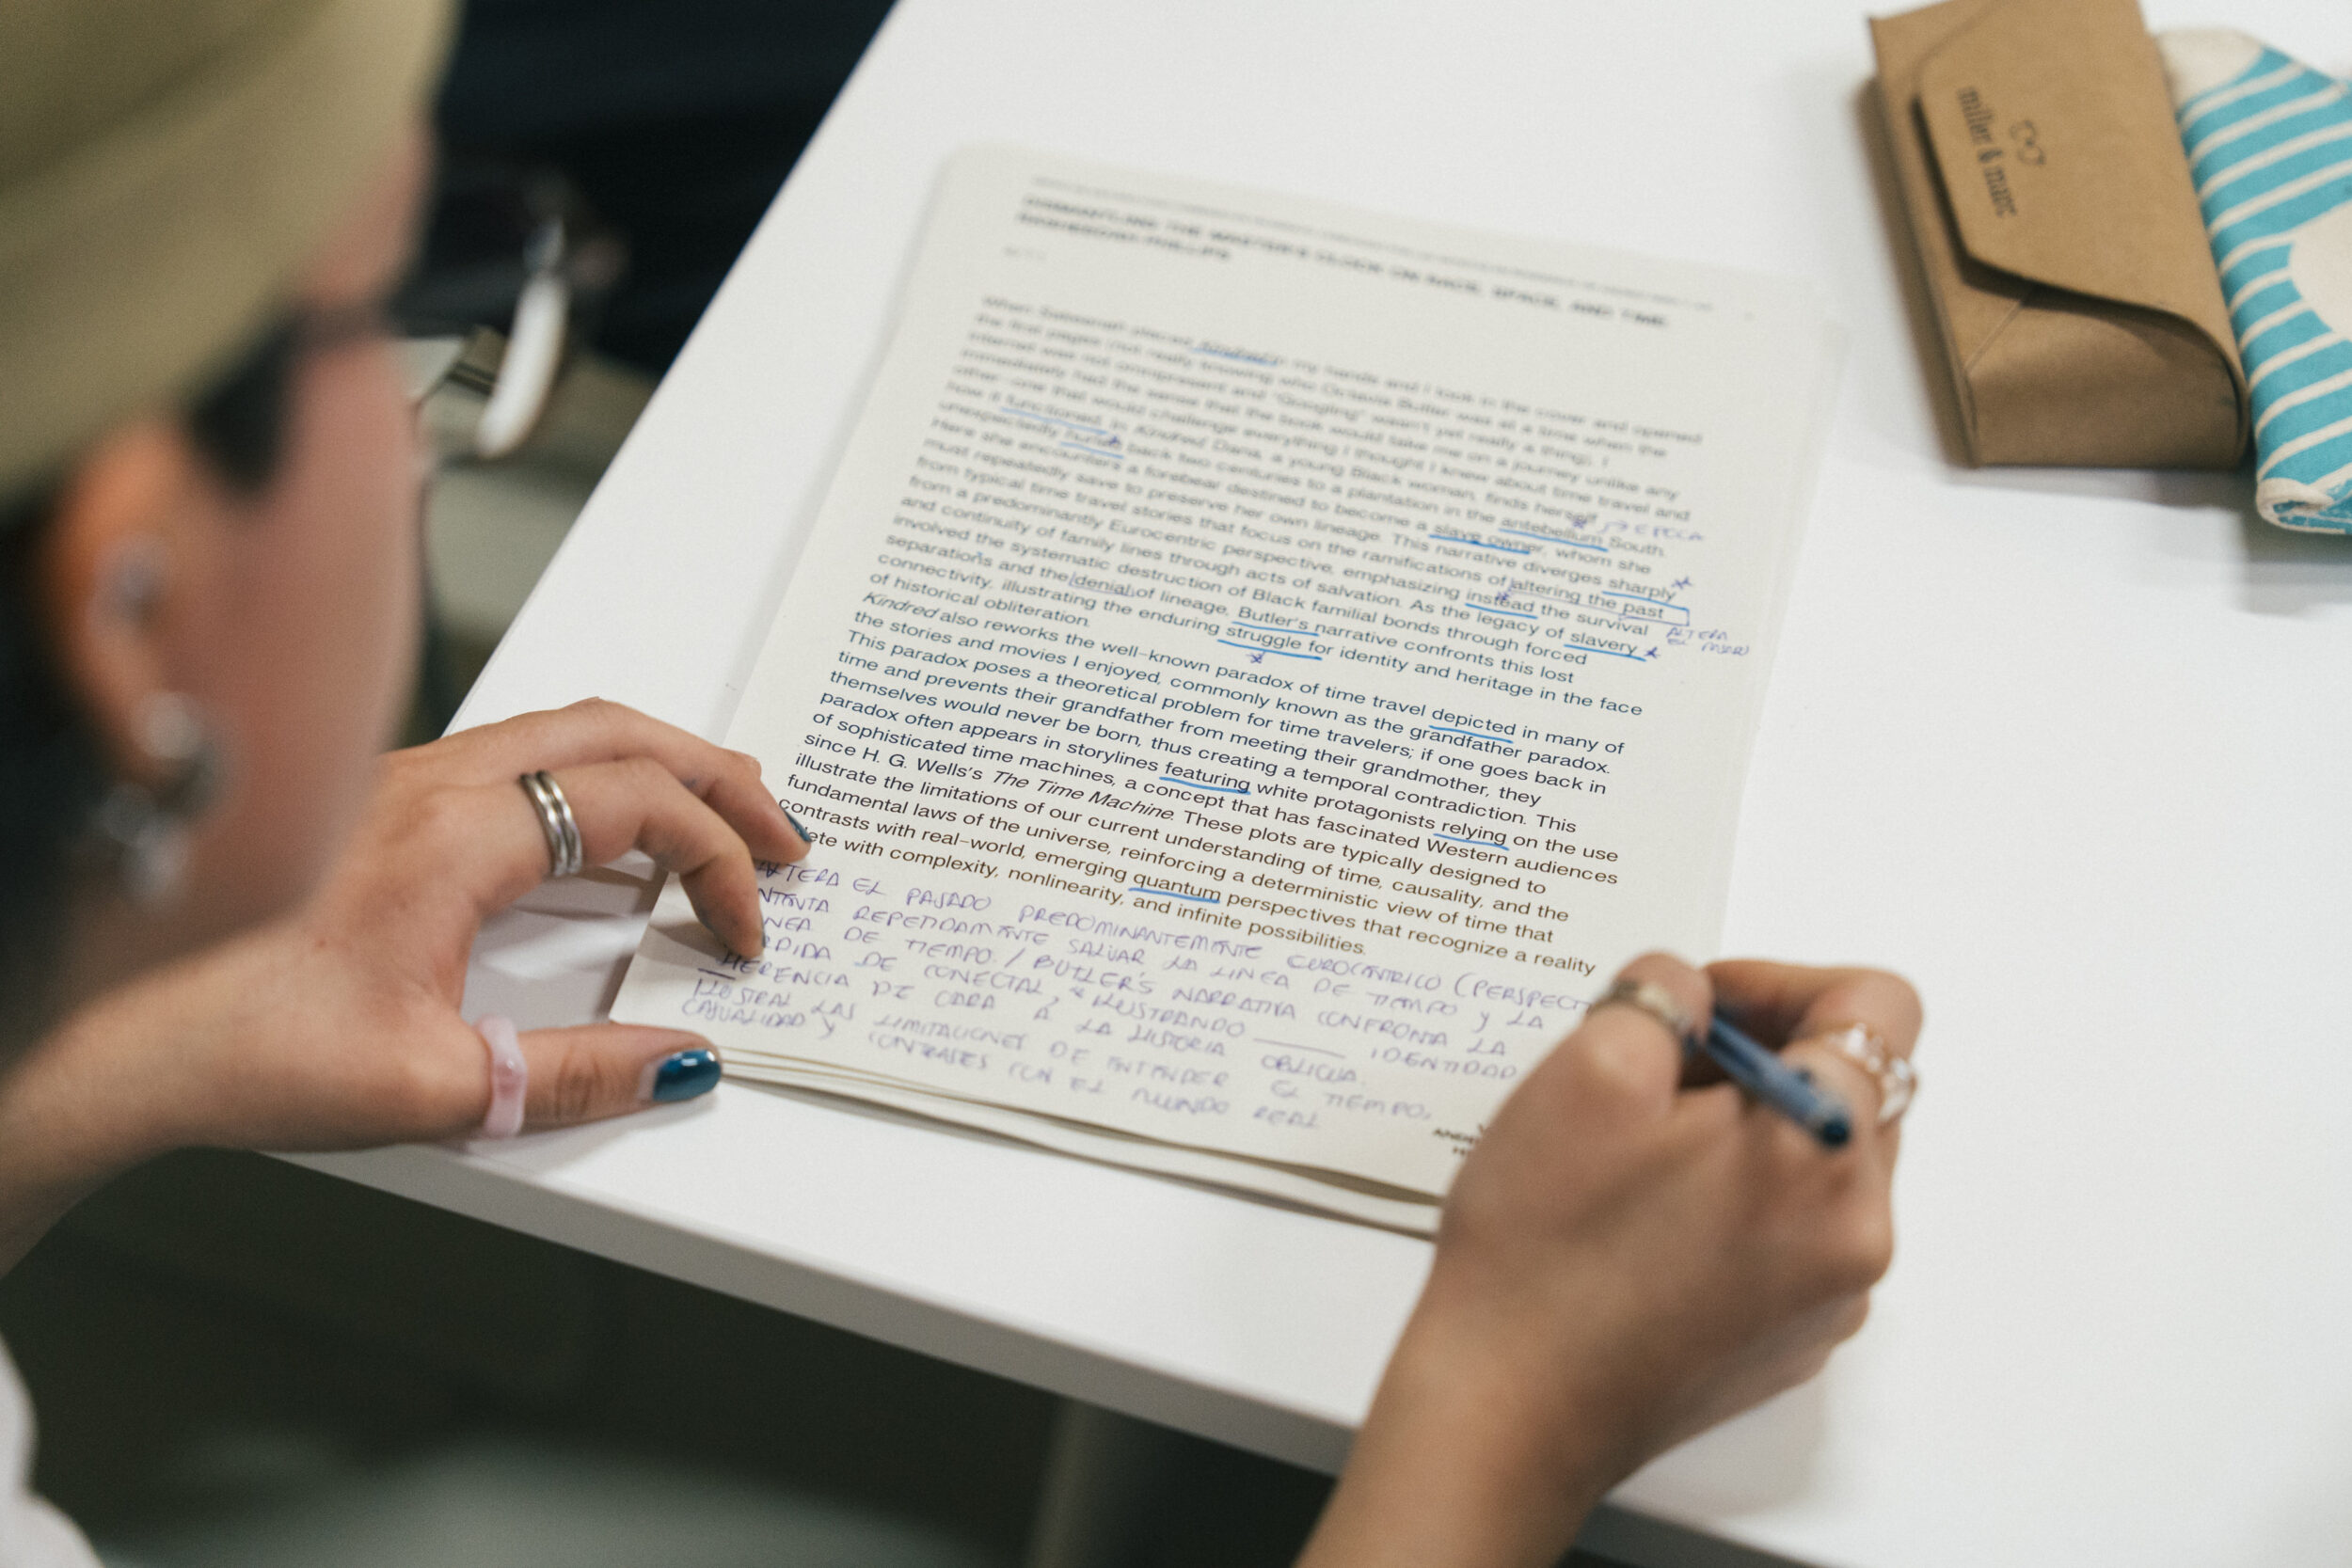 DISMANTLING THE MASTER'S CLOCK ON RACE, SPACE, AND TIME.
RASHEEDAH PHILLIPS
When Savannah placed Kindred in my hands and I took in the cover and opened
the first pages (not really knowing who Octavia Butler was at a time when the
internet was not omnipresent and "Googling" wasn't yet really a thing), I
immediately had the sense that the book would take me on a journey unlike any
other–one that would challenge everything I thought I knew about time travel and
how it functioned. In Kindred Dana, a young Black woman, finds herself
unexpectedly hurled back two centuries to a plantation in the antebellum South.
Here she encounters a forebear destined to become a slave owner, whom she
must repeatedly save to preserve her own lineage. This narrative diverges sharply
from typical time travel stories that focus on the ramifications of altering the past
from a predominantly Eurocentric perspective, emphasizing instead the survival
and continuity of family lines through acts of salvation. As the legacy of slavery
involved the systematic destruction of Black familial bonds through forced
separations and the denial of lineage, Butler's narrative confronts this lost
connectivity, illustrating the enduring struggle for identity and heritage in the face
of historical obliteration.
Kindred also reworks the well–known paradox of time travel depicted in many of
the stories and movies I enjoyed, commonly known as the grandfather paradox.
This paradox poses a theoretical problem for time travelers; if one goes back in
time and prevents their grandfather from meeting their grandmother, they
themselves would never be born, thus creating a temporal contradiction. This
paradox often appears in storylines featuring white protagonists relying on the use
of sophisticated time machines, a concept that has fascinated Western audiences
since H. G. Wells's The Time Machine. These plots are typically designed to
illustrate the limitations of our current understanding of time, causality, and the
fundamental laws of the universe, reinforcing a deterministic view of time that
contrasts with real–world, emerging quantum perspectives that recognize a reality
lete with complexity, nonlinearity, and infinite possibilities.
EPOCA
ALTERA
EL
ALTERA EL PASADO PREDOMINANTEMENTE EUROCENTRICO (PERSPECTI
INTENTA REPETIDAMENTE SALVAR LA LINEA DE TIEMPO Y LA
NEA DE TIEMPO. / BUTLER'S NARRATIVA CONFRONTA LA
RDIDA DE CONECTAR, ILUSTRANDO IDENTIDAD
HERENCIA DE CARA A LA HISTORIA OBLICUA.
ILOSTRAL LAS LIMITACIONES DE ENTENDER EL TIEMPO,
CASUALIDAD Y CONTRASTES CON EL MUNDO REAL
miller & marc